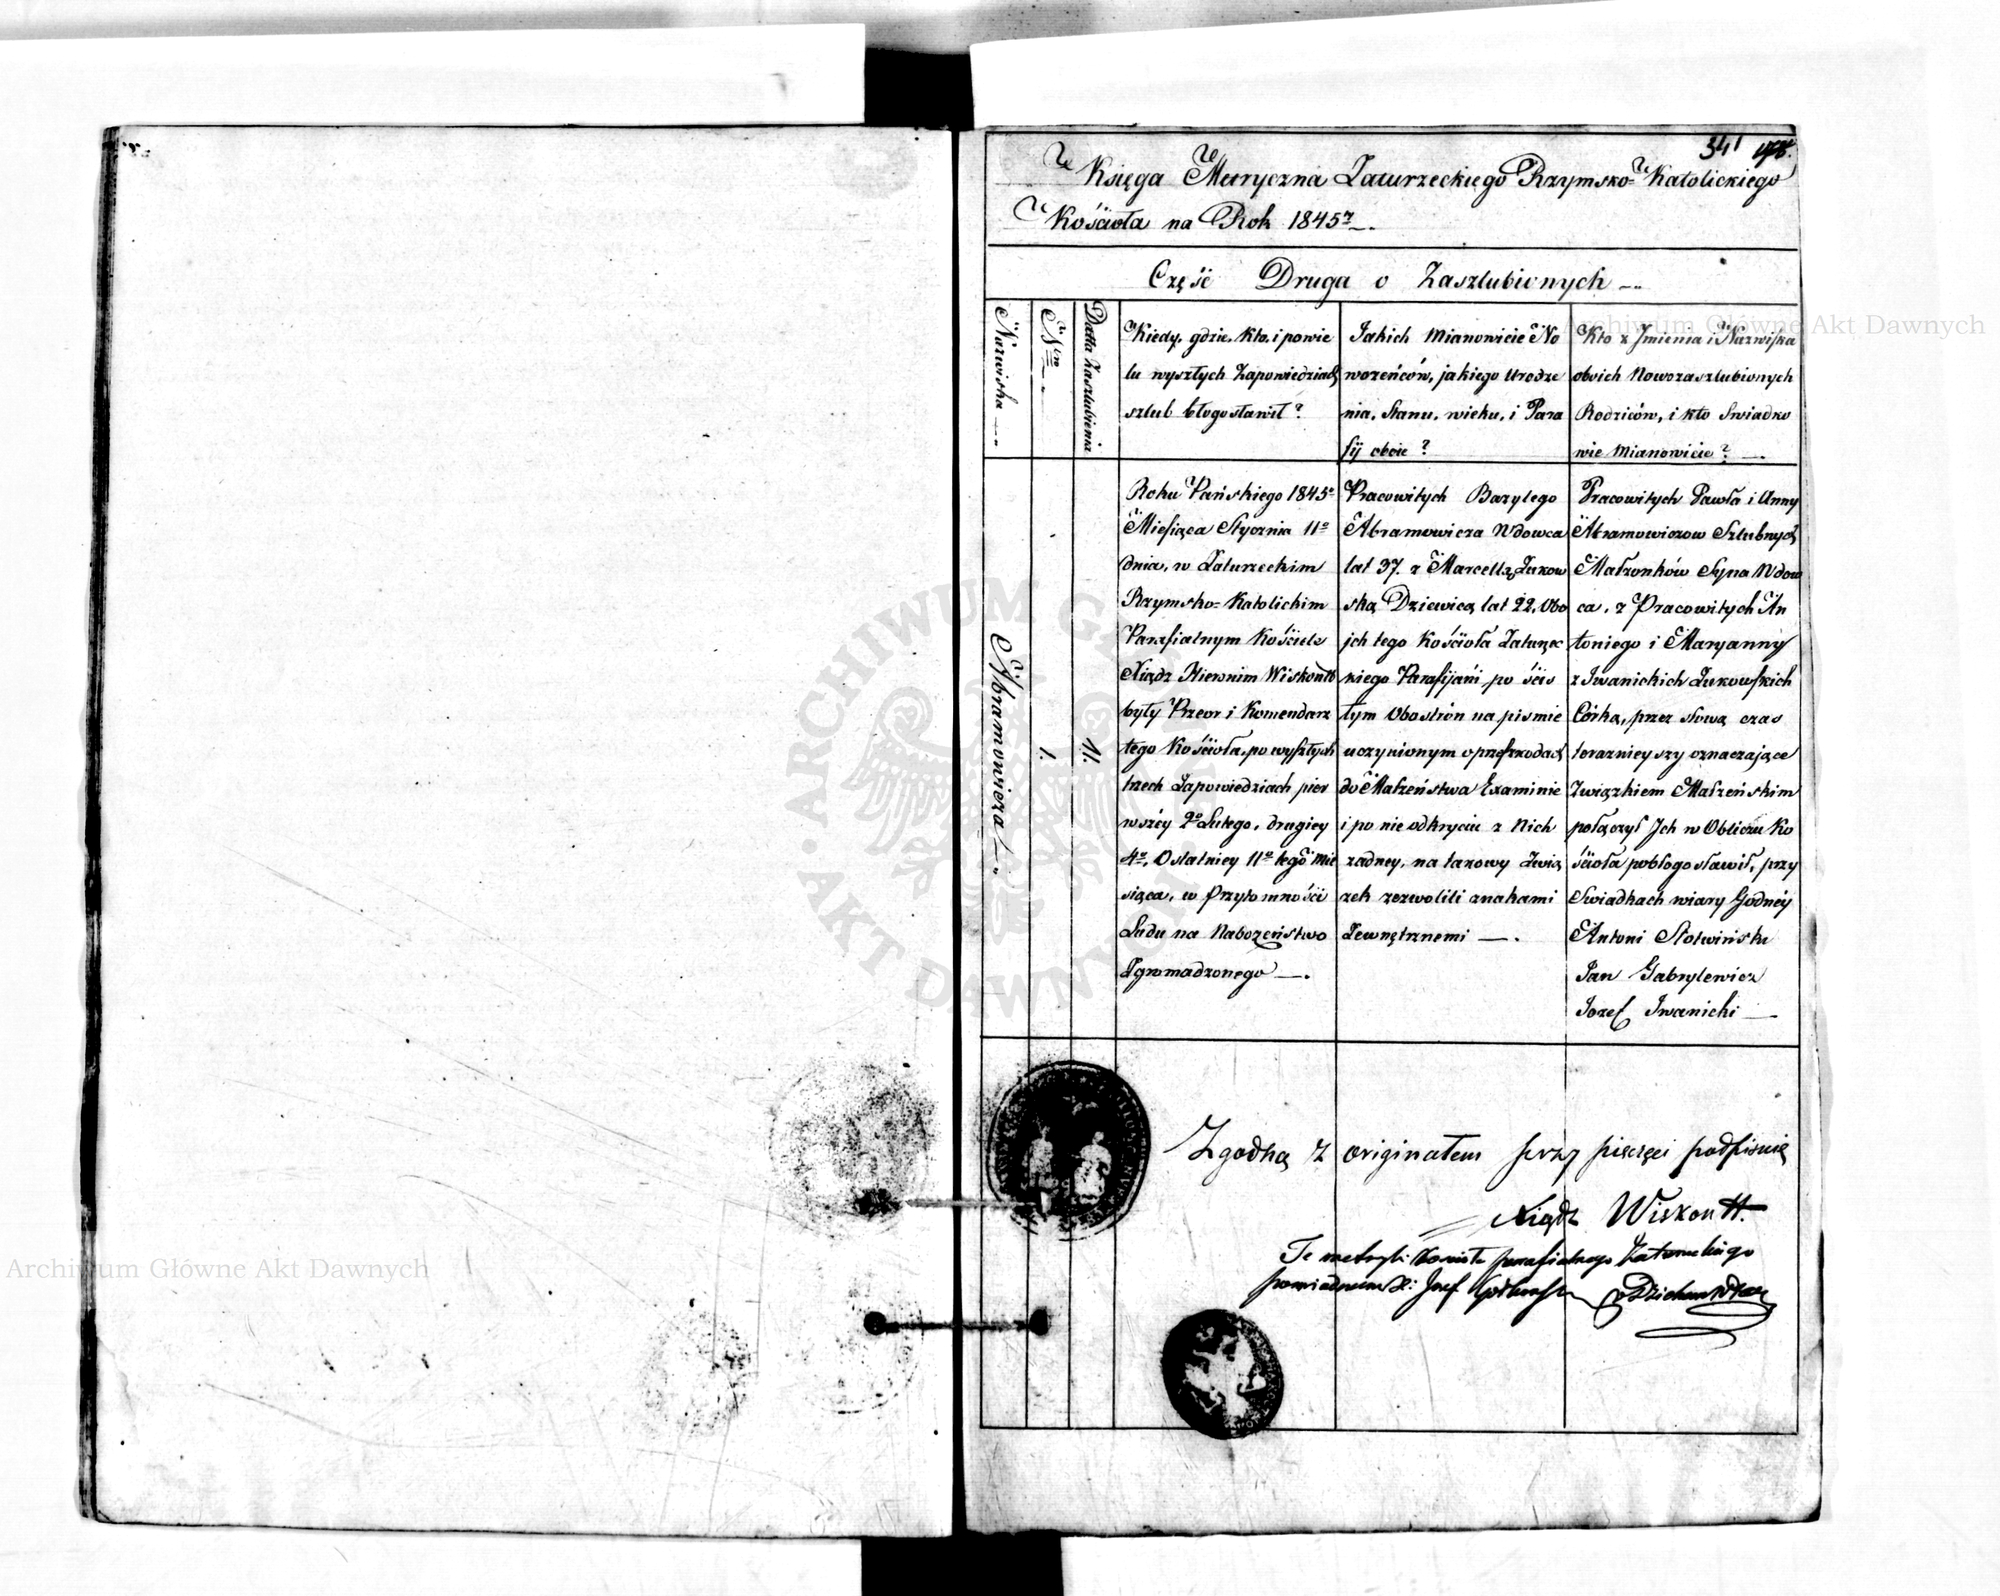 341
Księga Metryczna Zaturzeckiego Rzymsko-Katolickiego
Kościoła na Rok 1845ꝛ
Część Druga o Zaszlubionych
Nazwiska
Nro
Datta Zaszlubienia
Kiedy, gdzie, kto, i po wie
lu wyszłych Zapowiedziach
szlub błogosławił?
Jakich mianowicie No
wożeńców, jakiego urodze
nia, Stanu, wieku, i Para
fij oboie?
Kto z Jmienia i Nazwiska
oboich Nowozaszlubionych
Rodziców, i kto Swiadko
wie mianowicie?
Abramowicza
1.
11.
Roku Pańskiego 1845o
Miesiąca Stycznia 11o
dnia, w Zaturzeckim
Rzymsko-Katolickim
Parafialnym Kościele
Xiądz Hieronim Wiskontt
były Przeor i Komendarz
tego Kościoła, po wyszłych
trzech Zapowiedziach pier
wszéy 2o Lutego, drugiey
4o, Ostatniey 11o tegoż mie
siąca, w Przytomności
Ludu na Nabożeństwo
Zgromadzonego
Pracowitych Bazylego
Abramowicza Wdowca
lat 37. z Marcellą Żukow
ską Dziewicą lat 22, Obo
ich tego Kościoła Zaturzec
kiego Parafijani, po ścis
łym Obostrón na pismie
uczynionym o przeszkodach
do Małżeństwa Examinie
i po nie odkryciu z Nich
żadney, na takowy Zwią
zek zezwolili znakami
Zewnętrznemi
Pracowitych Pawła i Anny
Abramowiczow Szlubnych
Małżonków Syna Wdow
ca, z Pracowitych An
toniego i Maryanny
z Iwanickich Żukowskich
Córką, przez słowa czas
teraznieyszy oznaczające
Związkiem Małżeńskim
połączył Jch w Obliczu Ko
ścioła pobłogosławił, przy
Swiadkach wiary Godnéy
Antoni Słotwiński
Jan Gabrylewicz
Jozef Iwanicki
Zgodną z originałem przy pieczęci podpisuię
Xiądz Wiskontt.
Te metryki kościoła parafialnego Zaturzeckiego
Archiwum Główne Akt Dawnych
Archiwum Główne Akt Dawnych
ARCHIWUM GŁÓWNE AKT DAWNYCH